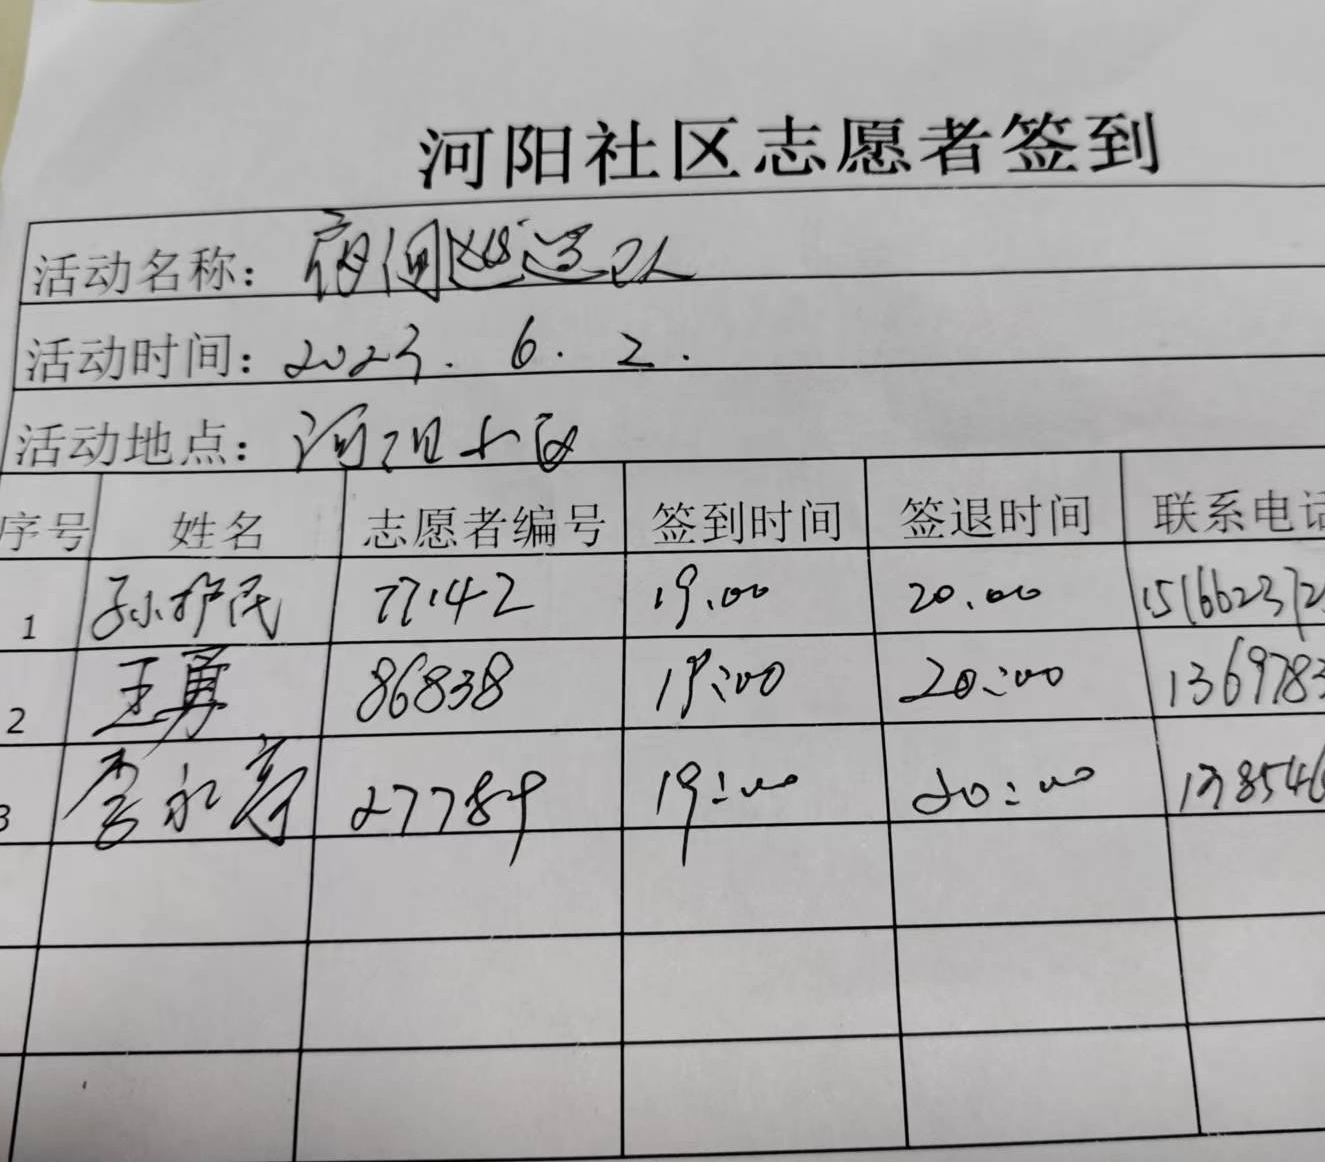 河阳社区志愿者签到
活动名称：夜间巡逻队
活动时间：2023.6.2.
活动地点：河阳小区
序号 姓名 志愿者编号 签到时间 签退时间 联系电话
1 孙护民 77142 19.00 20.00 151662372
2 王勇 86838 19:00 20:00 1369783
3 李永 27789 19:00 20:00 138546